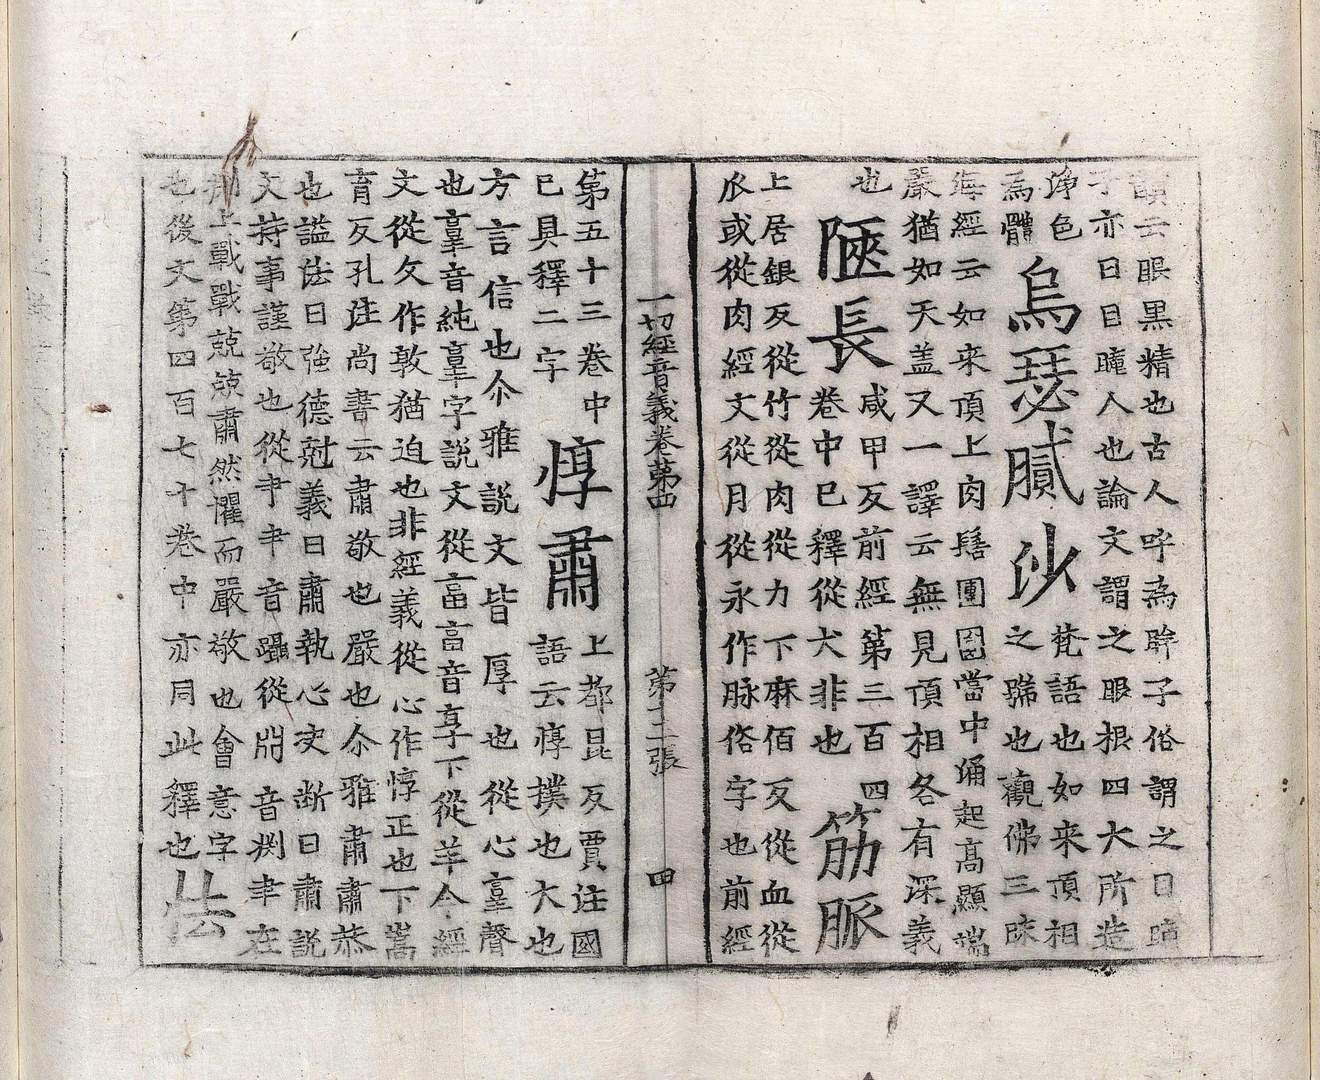 韻云眼黑精也古人呼為眸子俗謂之日瞳
子亦曰目瞳人也論文謂之眼根四大所造
淨色
為體
烏瑟膩沙
梵語也如来頂相
之瑞也觀佛三昧
海經云如来頂上肉髻團圓當中涌起高顯端
嚴猶如天盖又一譯云無見頂相各有深義
也
陿長
咸甲反前經第三百四
卷中已釋從犬非也
筋脈
上居銀反從竹從肉從力下麻佰反從血從
𠂢或從肉經文從月從永作脉俗字也前經
一切經音義卷第四 第二張 四
第五十三卷中
已具釋二字
惇肅
上都昆反賈注國
語云惇撲也大也
方言信也尒雅說文皆厚也從心𦎫聲
也𦎫音純𦎫字說文從亯亯音享下從羊今經
文從攵作敦猶迫也非經義從心作惇正也下嵩
育反孔注尚書云肅敬也嚴也尒雅肅肅恭
也謚法曰強德尅義曰肅執心決断曰肅說
文持事謹敬也從𦘒𦘒音躡從𣶒音渕聿在
上戰戰兢兢肅然懼而嚴敬也會意字
也後文第四百七十卷中亦同此釋也
怯